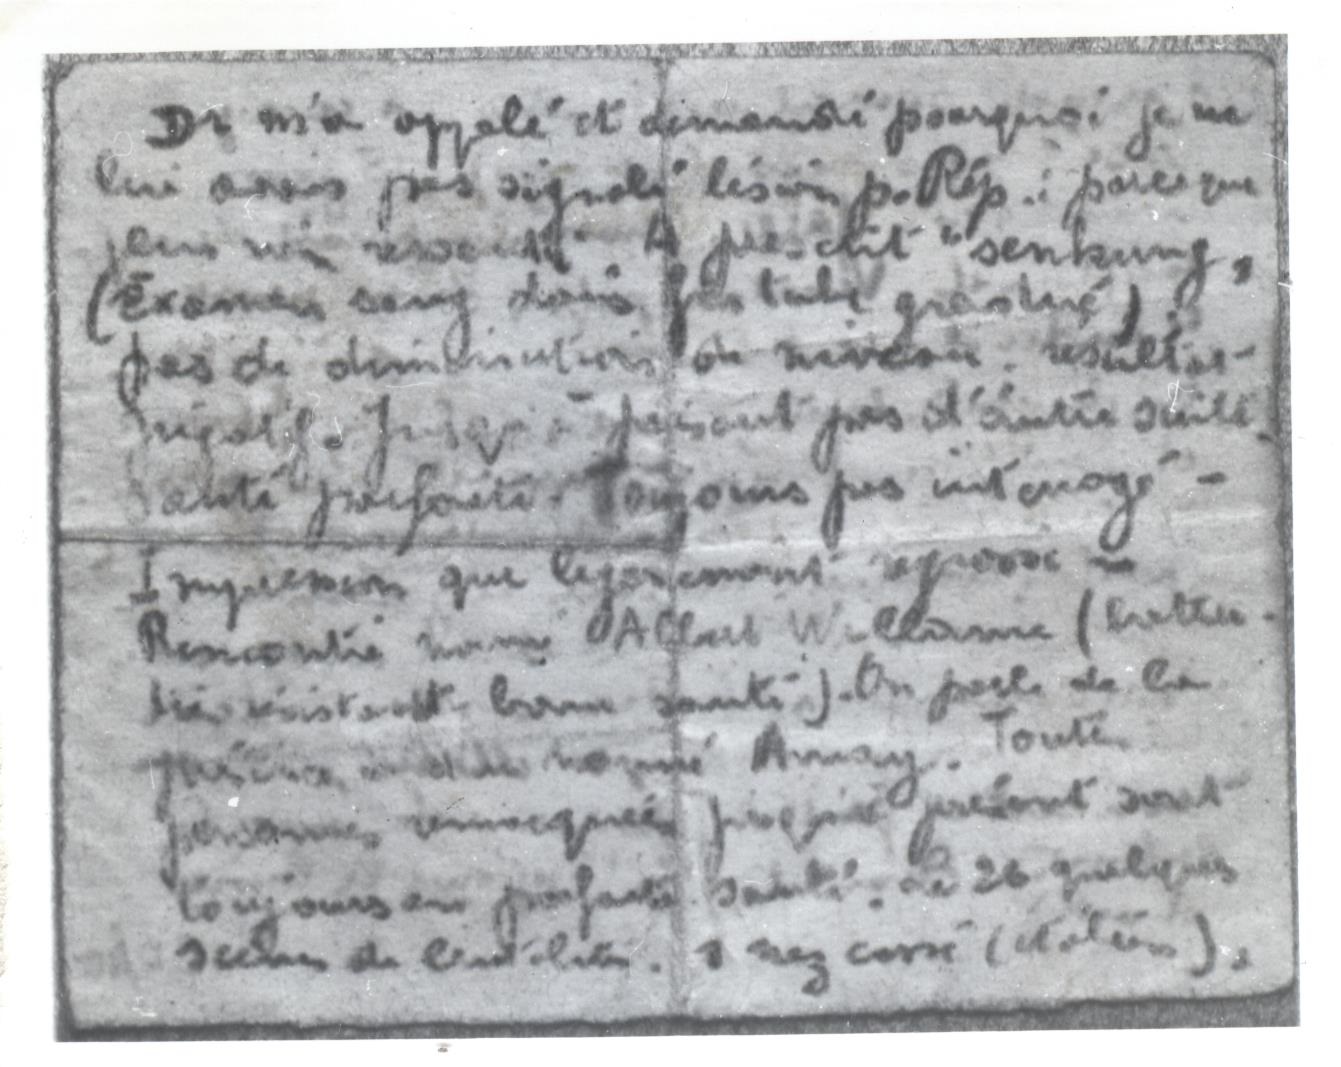 Dr m'a appelé et demandé pourquoi je ne
lui avais pas signalé lésion p. Rép.: parce que
rien A prescrit "senkung"
(Examen sang dans tube gradué)
pas de diminution de niveau. résultat
négatif. Jusqu'à présent pas d'autre suite
Santé parfaite. Toujours pas interrogé -
Impression que légèrement regrossi -
Rencontré nommé Albert Willeame
résistant bonne santé). On parle de la
présence d'un nommé Amay. Toutes
personnes remarquées jusqu'à présent sont
toujours en parfaite santé. Le 26 quelques
scènes de 1 nez cassé